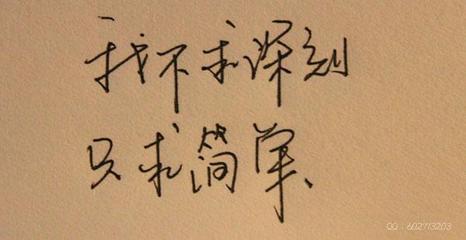 我不求深刻
只求简单、
QQ：602713203